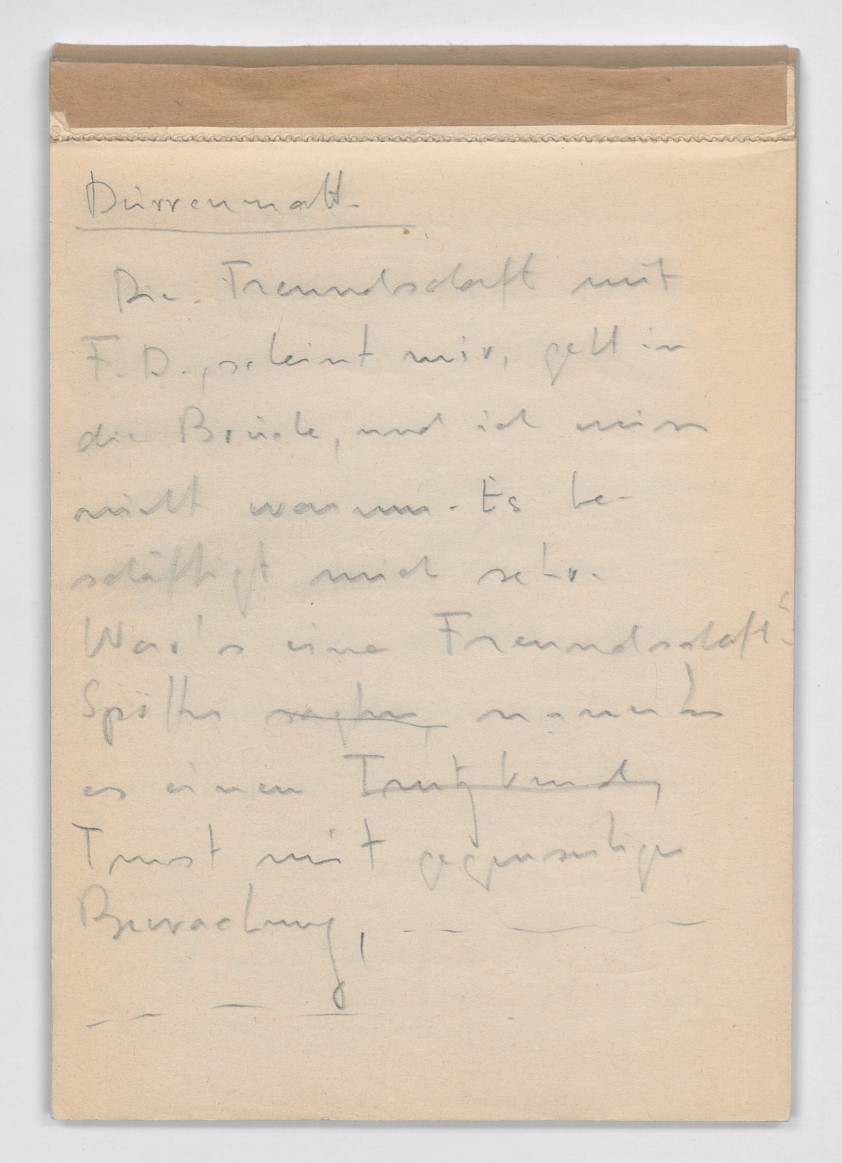 Dürrenmatt.
Die Freundschaft mit
F. D., scheint mir, geht in
die Brüche, und ich weiss
nicht warum. Es be-
schäftigt mich sehr.
War's eine Freundschaft?
Spötter sagten, nannten
es einen Trutzbund,
Trust mit gegenseitiger
Bewachung,